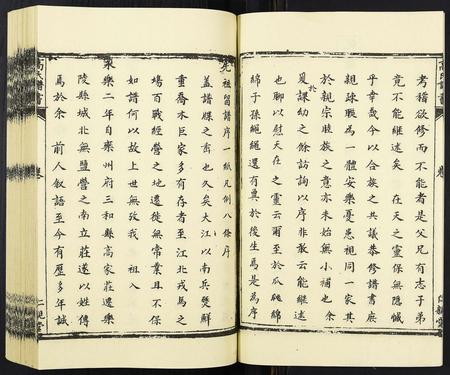 考稽欲修而不能者是父兄有志子弟
竟不能繼述矣　在天之靈保無隱憾
乎幸哉今以合族之共議恭修譜書庶
親疎覩為一體安樂憂患視同一家其
於親宗睦族之意亦未始無小補也余
夏課幼之餘訪詢以序非敢云能繼述
也聊以慰天在之靈云爾至於瓜瓞綿
綿子孫繩繩還有冀於後生焉是為序
先祖留譜序一紙凡例八條序
蓋譜牒之書也久矣大江以南兵燹鮮
重喬木巨家多有存者至江北戎馬之
場百戰經營之地遷徙無常業且不保
如譜何以故上世無致我　祖入
樂二年自樂州府三和縣高家莊遷樂
陵縣城北無鹽營之南立莊遂以姓傳
焉於余　前人叙語至今有歷多年誠
高氏譜書
卷